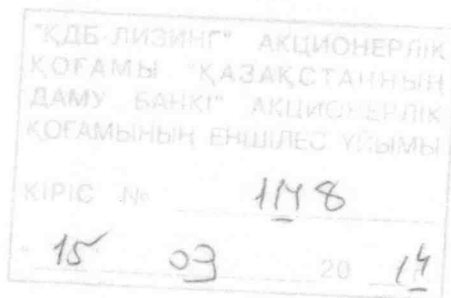 "ҚДБ-ЛИЗИНГ" АКЦИОНЕРЛІК
ҚОҒАМЫ "ҚАЗАҚСТАННЫҢ
ДАМУ БАНКІ" АКЦИОНЕРЛІК
ҚОҒАМЫНЫҢ ЕНШІЛЕС ҰЙЫМЫ
КІРІС №
" 15 03 20 14